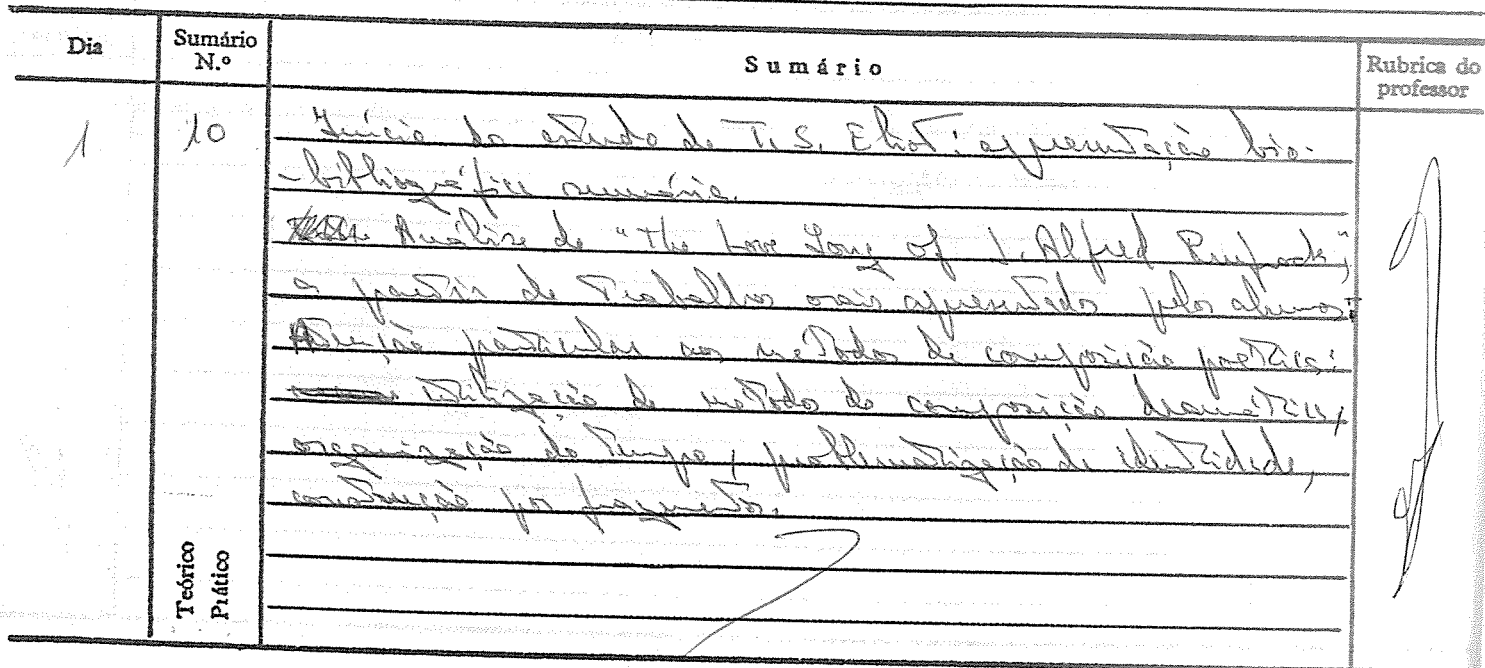 Dia
Sumário N.º
Sumário
Rubrica do professor
1
10
Início do estudo de T. S. Eliot: apresentação bio-
-bibliográfica sumária.
Análise de "The Love Song of J. Alfred Prufrock",
a partir de trabalhos orais apresentados pelos alunos.
Atenção particular aos métodos de composição poética:
utilização do método de composição dramática,
organização do tempo, problematização da identidade,
construção por fragmentos.
Teórico
Prático